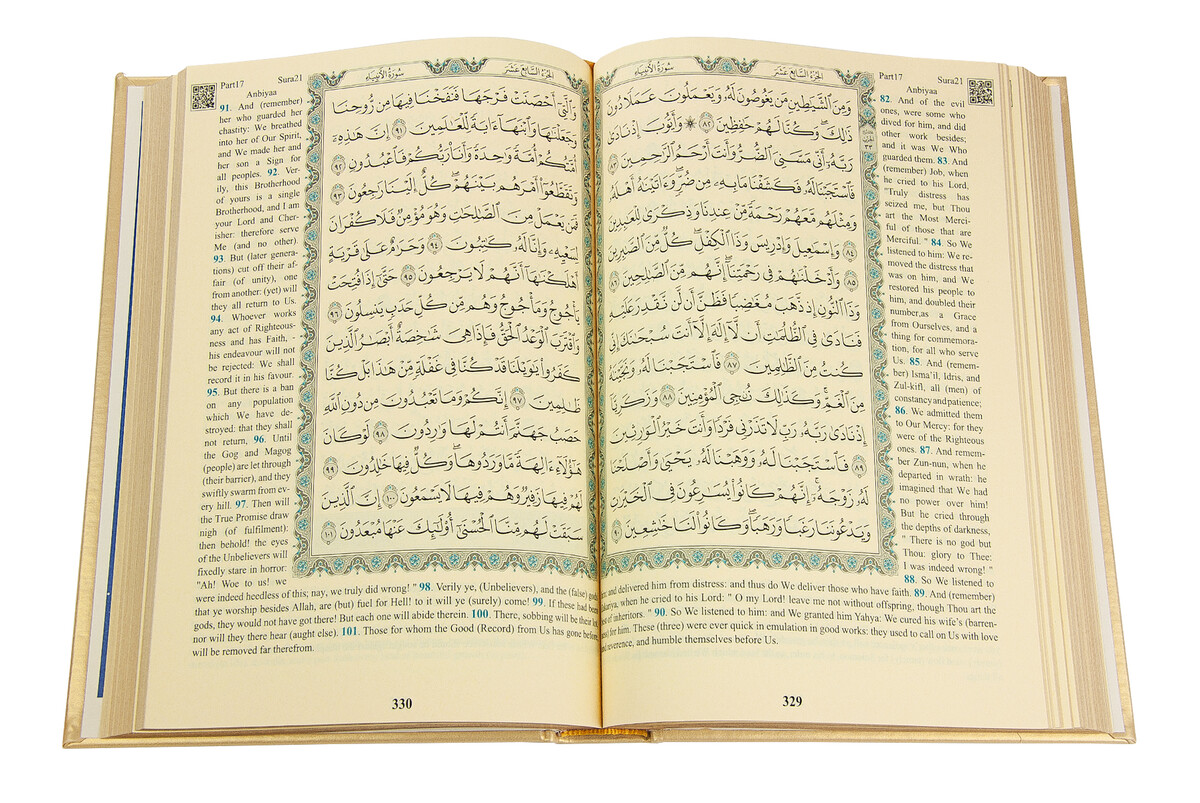 الجزء السابع عشر
سورة الأنبياء
وَمِنَ ٱلشَّيَٰطِينِ مَن يَغُوصُونَ لَهُۥ وَيَعْمَلُونَ عَمَلًا دُونَ
ذَٰلِكَ ۖ وَكُنَّا لَهُمْ حَٰفِظِينَ ٨٢ ۞ وَأَيُّوبَ إِذْ نَادَىٰ
رَبَّهُۥٓ أَنِّى مَسَّنِىَ ٱلضُّرُّ وَأَنتَ أَرْحَمُ ٱلرَّٰحِمِينَ ٨٣
فَٱسْتَجَبْنَا لَهُۥ فَكَشَفْنَا مَا بِهِۦ مِن ضُرٍّ ۖ وَءَاتَيْنَٰهُ أَهْلَهُۥ
وَمِثْلَهُم مَّعَهُمْ رَحْمَةً مِّنْ عِندِنَا وَذِكْرَىٰ لِلْعَٰبِدِينَ
٨٤ وَإِسْمَٰعِيلَ وَإِدْرِيسَ وَذَا ٱلْكِفْلِ ۖ كُلٌّ مِّنَ ٱلصَّٰبِرِينَ
٨٥ وَأَدْخَلْنَٰهُمْ فِى رَحْمَتِنَآ ۖ إِنَّهُم مِّنَ ٱلصَّٰلِحِينَ ٨٦
وَذَا ٱلنُّونِ إِذ ذَّهَبَ مُغَٰضِبًا فَظَنَّ أَن لَّن نَّقْدِرَ عَلَيْهِ
فَنَادَىٰ فِى ٱلظُّلُمَٰتِ أَن لَّآ إِلَٰهَ إِلَّآ أَنتَ سُبْحَٰنَكَ إِنِّى
كُنتُ مِنَ ٱلظَّٰلِمِينَ ٨٧ فَٱسْتَجَبْنَا لَهُۥ وَنَجَّيْنَٰهُ
مِنَ ٱلْغَمِّ ۚ وَكَذَٰلِكَ نُۨجِى ٱلْمُؤْمِنِينَ ٨٨ وَزَكَرِيَّآ
إِذْ نَادَىٰ رَبَّهُۥ رَبِّ لَا تَذَرْنِى فَرْدًا وَأَنتَ خَيْرُ ٱلْوَٰرِثِينَ
٨٩ فَٱسْتَجَبْنَا لَهُۥ وَوَهَبْنَا لَهُۥ يَحْيَىٰ وَأَصْلَحْنَا
لَهُۥ زَوْجَهُۥٓ ۚ إِنَّهُمْ كَانُوا۟ يُسَٰرِعُونَ فِى ٱلْخَيْرَٰتِ
وَيَدْعُونَنَا رَغَبًا وَرَهَبًا ۖ وَكَانُوا۟ لَنَا خَٰشِعِينَ ٩٠
Part17 Sura21
Anbiyaa
82. And of the evil
ones, were some who
dived for him, and did
other work besides;
and it was We Who
guarded them. 83. And
(remember) Job, when
he cried to his Lord,
"Truly distress has
seized me, but Thou
art the Most Merci-
ful of those that are
Merciful. " 84. So We
listened to him: We re-
moved the distress that
was on him, and We
restored his people to
him, and doubled their
number,as a Grace
from Ourselves, and a
thing for commemora-
tion, for all who serve
Us. 85. And (remem-
ber) Isma'il, Idris, and
Zul-kifl, all (men) of
constancy and patience;
86. We admitted them
to Our Mercy: for they
were of the Righteous
ones. 87. And remem-
ber Zun-nun, when he
departed in wrath: he
imagined that We had
no power over him!
But he cried through
the depths of darkness,
" There is no god but
Thou: glory to Thee:
I was indeed wrong! "
88. So We listened to
and delivered him from distress: and thus do We deliver those who have faith. 89. And (remember)
when he cried to his Lord: " O my Lord! leave me not without offspring, though Thou art the
of inheritors. " 90. So We listened to him: and We granted him Yahya: We cured his wife's (barren-
for him. These (three) were ever quick in emulation in good works: they used to call on Us with love
reverence, and humble themselves before Us.
329
الجزء السابع عشر
سورة الأنبياء
وَٱلَّتِىٓ أَحْصَنَتْ فَرْجَهَا فَنَفَخْنَا فِيهَا مِن رُّوحِنَا
وَجَعَلْنَٰهَا وَٱبْنَهَآ ءَايَةً لِّلْعَٰلَمِينَ ٩١ إِنَّ هَٰذِهِۦٓ
أُمَّتُكُمْ أُمَّةً وَٰحِدَةً وَأَنَا۠ رَبُّكُمْ فَٱعْبُدُونِ ٩٢
وَتَقَطَّعُوٓا۟ أَمْرَهُم بَيْنَهُمْ ۖ كُلٌّ إِلَيْنَا رَٰجِعُونَ ٩٣
فَمَن يَعْمَلْ مِنَ ٱلصَّٰلِحَٰتِ وَهُوَ مُؤْمِنٌ فَلَا كُفْرَانَ
لِسَعْيِهِۦ وَإِنَّا لَهُۥ كَٰتِبُونَ ٩٤ وَحَرَٰمٌ عَلَىٰ قَرْيَةٍ
أَهْلَكْنَٰهَآ أَنَّهُمْ لَا يَرْجِعُونَ ٩٥ حَتَّىٰٓ إِذَا فُتِحَتْ
يَأْجُوجُ وَمَأْجُوجُ وَهُم مِّن كُلِّ حَدَبٍ يَنسِلُونَ ٩٦
وَٱقْتَرَبَ ٱلْوَعْدُ ٱلْحَقُّ فَإِذَا هِىَ شَٰخِصَةٌ أَبْصَٰرُ ٱلَّذِينَ
كَفَرُوا۟ يَٰوَيْلَنَا قَدْ كُنَّا فِى غَفْلَةٍ مِّنْ هَٰذَا بَلْ كُنَّا
ظَٰلِمِينَ ٩٧ إِنَّكُمْ وَمَا تَعْبُدُونَ مِن دُونِ ٱللَّهِ
حَصَبُ جَهَنَّمَ أَنتُمْ لَهَا وَٰرِدُونَ ٩٨ لَوْ كَانَ
هَٰٓؤُلَآءِ ءَالِهَةً مَّا وَرَدُوهَا ۖ وَكُلٌّ فِيهَا خَٰلِدُونَ ٩٩
لَهُمْ فِيهَا زَفِيرٌ وَهُمْ فِيهَا لَا يَسْمَعُونَ ١٠٠ إِنَّ ٱلَّذِينَ
سَبَقَتْ لَهُم مِّنَّا ٱلْحُسْنَىٰٓ أُو۟لَٰٓئِكَ عَنْهَا مُبْعَدُونَ ١٠١
Part17 Sura21
Anbiyaa
91. And (remember)
her who guarded her
chastity: We breathed
into her of Our Spirit,
and We made her and
her son a Sign for
all peoples. 92. Ver-
ily, this Brotherhood
of yours is a single
Brotherhood, and I am
your Lord and Cher-
isher: therefore serve
Me (and no other).
93. But (later genera-
tions) cut off their af-
fair (of unity), one
from another: (yet) will
they all return to Us.
94. Whoever works
any act of Righteous-
ness and has Faith, -
his endeavour will not
be rejected: We shall
record it in his favour.
95. But there is a ban
on any population
which We have de-
stroyed: that they shall
not return, 96. Until
the Gog and Magog
(people) are let through
(their barrier), and they
swiftly swarm from ev-
ery hill. 97. Then will
the True Promise draw
nigh (of fulfilment):
then behold! the eyes
of the Unbelievers will
fixedly stare in horror:
"Ah! Woe to us! we
were indeed heedless of this; nay, we truly did wrong! " 98. Verily ye, (Unbelievers), and the (false) gods
that ye worship besides Allah, are (but) fuel for Hell! to it will ye (surely) come! 99. If these had been
gods, they would not have got there! But each one will abide therein. 100. There, sobbing will be their
nor will they there hear (aught else). 101. Those for whom the Good (Record) from Us has gone before,
will be removed far therefrom.
330